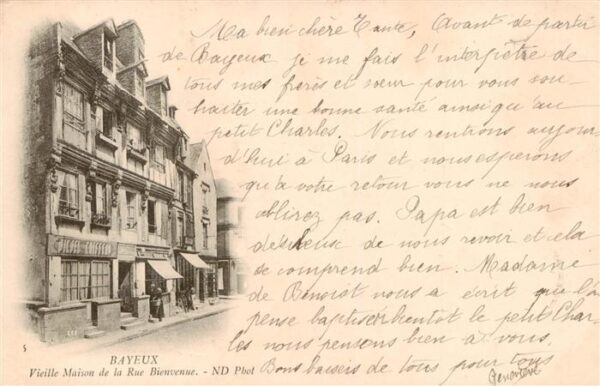 Ma bien chère Tante, Avant de partir
de Bayeux je me fais l'interprète de
tous mes frères et sœur pour vous sou-
haiter une bonne santé ainsi qu'au
petit Charles. Nous rentrons aujour-
d'hui à Paris et nous esperons
qu'a votre retour vous ne nous
oblirez pas. Papa est bien
desireux de nous revoir et cela
se comprend bien. Madame
de Benoist vous a écrit que l'on
pense baptiser bientot le petit Char-
les nous pensons bien à vous.
Bons baisers de tous pour tous
Geneviève
5
BAYEUX
Vieille Maison de la Rue Bienvenue. - ND Phot